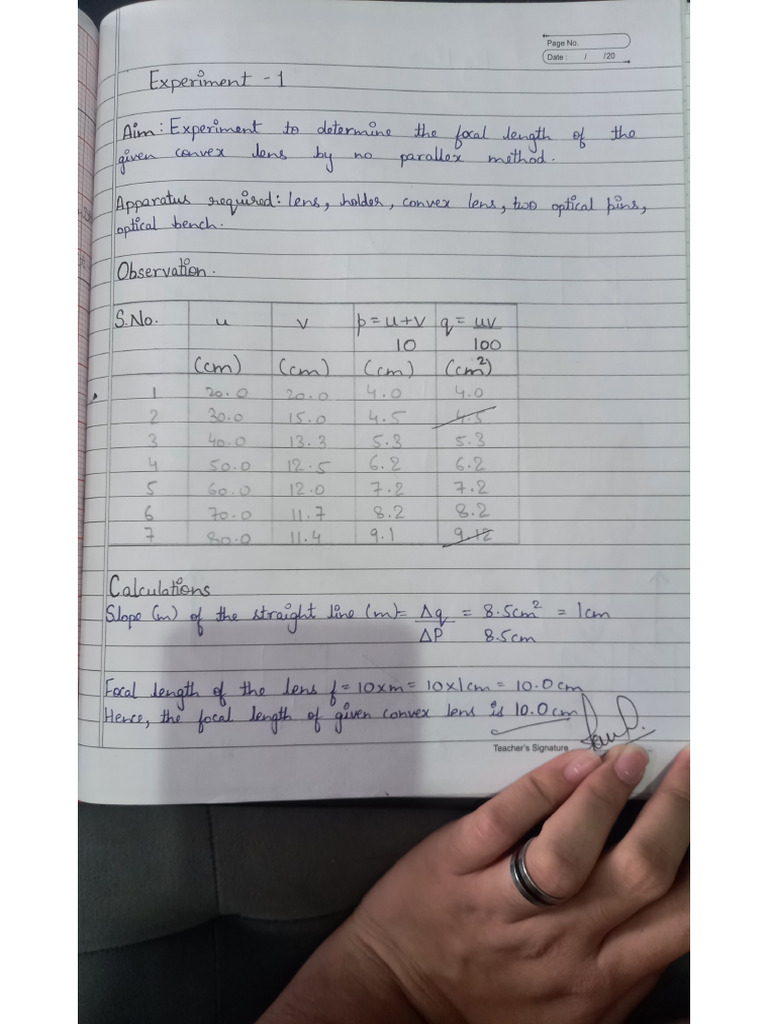 Page No.
Date : / /20
Experiment - 1
Aim: Experiment to determine the focal length of the
given convex lens by no parallex method.
Apparatus required: lens, holder, convex lens, two optical pins,
optical bench.
Observation.
S.No. u v p = u+v/10 q = uv/100
(cm) (cm) (cm) (cm²)
1 20.0 20.0 4.0 4.0
2 30.0 15.0 4.5 4.5
3 40.0 13.3 5.3 5.3
4 50.0 12.5 6.2 6.2
5 60.0 12.0 7.2 7.2
6 70.0 11.7 8.2 8.2
7 80.0 11.4 9.1 9.12
Calculations
Slope (m) of the straight line (m)= Δq/ΔP = 8.5cm²/8.5cm = 1cm
Focal length of the lens f = 10xm = 10x1cm = 10.0cm
Hence, the focal length of given convex lens is 10.0cm
Teacher's Signature